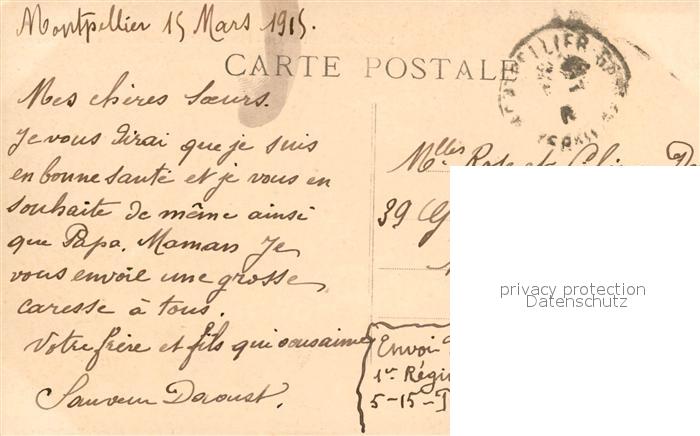 Montpellier 15 Mars 1915.
CARTE POSTALE
Mes chères Sœurs.
Je vous dirai que je suis
en bonne santé et je vous en
souhaite de même ainsi
que Papa. Maman Je
vous envoie une grosse
caresse à tous.
Votre frère et fils qui vous aime
Sauveur Daroust.
Mlles Rose et
39
privacy protection
Datenschutz
Envoi
1er Régi
5-15-